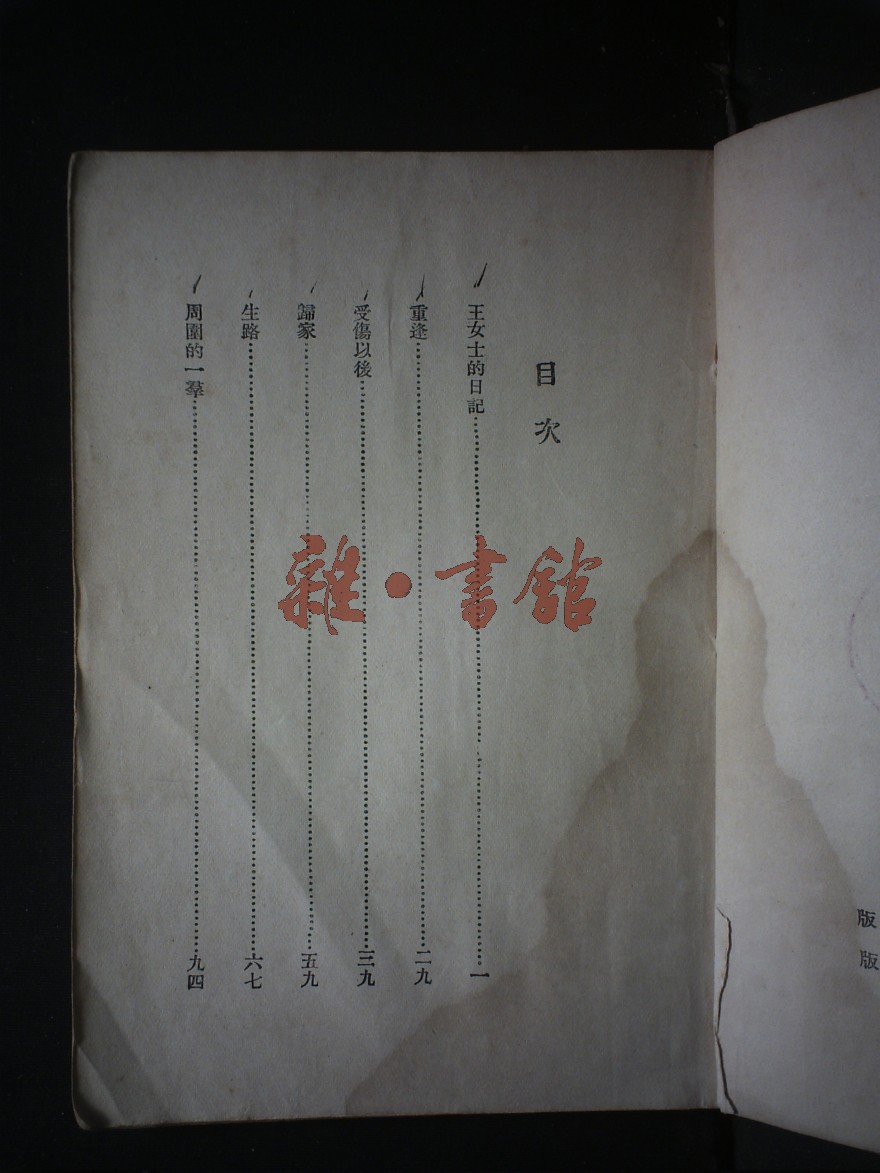 目次
王女士的日記⋯⋯⋯⋯⋯⋯⋯⋯一
重逢⋯⋯⋯⋯⋯⋯⋯⋯二九
受傷以後⋯⋯⋯⋯⋯⋯⋯⋯三九
歸家⋯⋯⋯⋯⋯⋯⋯⋯五九
生路⋯⋯⋯⋯⋯⋯⋯⋯六七
周圍的一羣⋯⋯⋯⋯⋯⋯⋯⋯九四
雜•書館
版
版